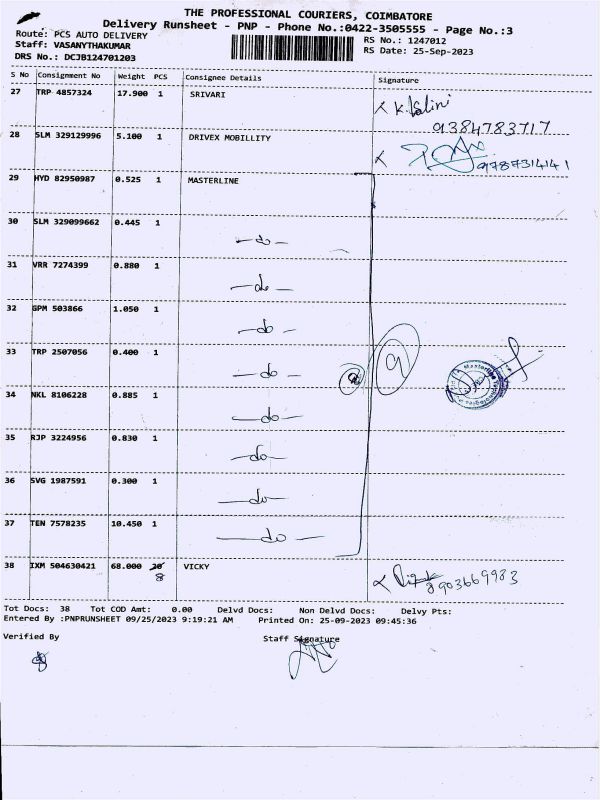 THE PROFESSIONAL COURIERS, COIMBATORE
Delivery Runsheet - PNP - Phone No.:0422-3505555 - Page No.:3
Route: PCS AUTO DELIVERY
RS No.: 1247012
Staff: VASANYTHAKUMAR
RS Date: 25-Sep-2023
DRS No.: DCJB124701203
S No Consignment No Weight PCS Consignee Details Signature
27 TRP 4857324 17.900 1 SRIVARI
9384783717
28 SLM 329129996 5.100 1 DRIVEX MOBILLITY
9787314141
29 HYD 82950987 0.525 1 MASTERLINE
30 SLM 329099662 0.445 1 -do-
31 VRR 7274399 0.880 1 -do-
32 GPM 503866 1.050 1 -do-
33 TRP 2507056 0.400 1 -do- 9 9
34 NKL 8106228 0.885 1 -do-
35 RJP 3224956 0.830 1 -do-
36 SVG 1987591 0.300 1 -do-
37 TEN 7578235 10.450 1 -do-
38 IXM 504630421 68.000 8 VICKY
8903669983
Tot Docs: 38 Tot COD Amt: 0.00 Delvd Docs: Non Delvd Docs: Delvy Pts:
Entered By :PNPRUNSHEET 09/25/2023 9:19:21 AM Printed On: 25-09-2023 09:45:36
Verified By Staff Signature